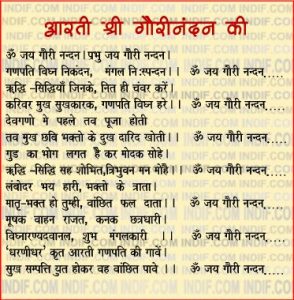 आरती श्री गौरीनंदन की
ॐ जय गौरी नन्दन।प्रभु जय गौरी नंदन।
गणपति विघ्न निकंदन, मंगल निःस्पन्दन।। ॐ जय गौरी नन्दन.....
ऋद्धि -सिद्धियाँ जिनके, नित ही चंवर करें।
करिवर मुख सुखकारक, गणपति विघ्न हरें।। ॐ जय गौरी नन्दन.....
देवगणो मे पहले तव पूजा होती
तव मुख छवि भक्तो के दुख दारिद खोती।। ॐ जय गौरी नन्दन.....
गुड का भोग लगत है कर मोदक सोहे
ऋद्धि -सिद्धि सह शोभित,त्रिभुवन मन मोहै।। ॐ जय गौरी नन्दन.....
लंबोदर भय हारी, भक्तो के त्राता।
मातृ-भक्त हो तुम्ही, वांछित फल दाता।। ॐ जय गौरी नन्दन.....
मूषक वाहन राजत, कनक छत्रधारी।
विघ्नारण्यदवानल, शुभ मंगलकारी ।। ॐ जय गौरी नन्दन.....
'धरणीधर' कृत आरती गणपति की गावें।
सुख सम्पत्ति युत होकर वह वांछित पावे ।। ॐ जय गौरी नन्दन.....
INDIF.COM